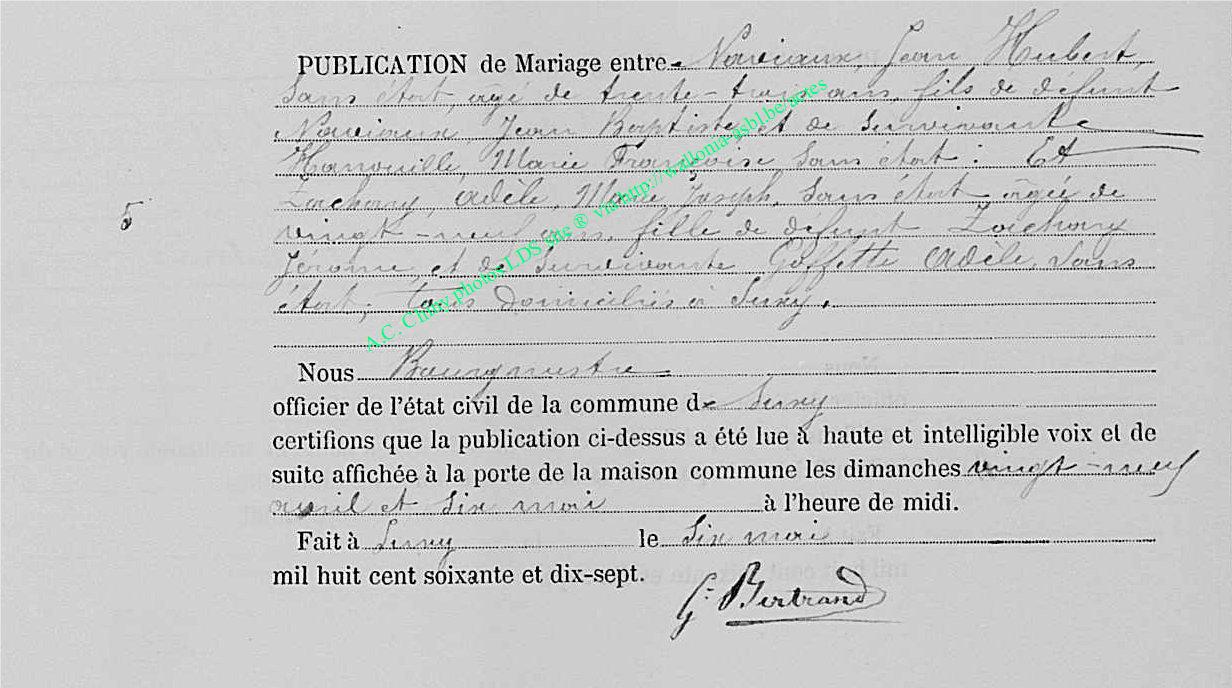 PUBLICATION de Mariage entre Noviaux, Jean Hubert,
sans état, agé de trente-trois ans, fils de défunt
Noviaux, Jean Baptiste et de survivante
Hanouille, Marie Françoise sans état : Et
Zachary, Adèle, Marie, Joseph, sans état, agée de
vingt-neuf ans, fille de défunt Zachary
Jérome, et de survivante Goffette Adèle, sans
état, tous domiciliés à Suxy.
5
A.C. Chiny photos LDS site ® via http://wallonia-asbl.be/actes
Nous Bourgmestre
officier de l'état civil de la commune de Suxy
certifions que la publication ci-dessus a été lue à haute et intelligible voix et de
suite affichée à la porte de la maison commune les dimanches vingt-neuf
avril et six mai à l'heure de midi.
Fait à Suxy le six mai
mil huit cent soixante et dix-sept.
G. Bertrand